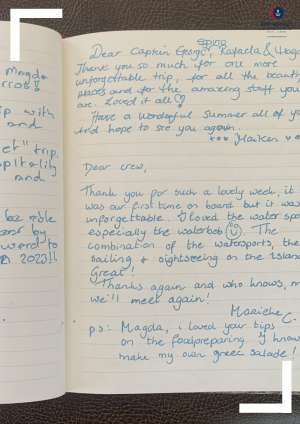 Magda
ip with
and
et" trip
pitality
and
be able
ward to
2023!!
Spiros
Dear Captain George, Rafaela &
Thank you so much for one more
unforgettable trip, for all the beauti
places and for the amazing staff you
are. Loved it all
Have a wonderful summer all of y
and hope to see you again.
Dear crew,
Thank you for such a lovely week, it
was our first time on board but it was
unforgettable. I loved the water spo
especially the waterbob. The
combination of the watersports, the
sailing & sightseeing on the island
Great!
Thanks again and who knows, m
we'll meet again!
Marieke C.
ps: Magda, i loved your tips
on the foodpreparing I know
make my own greec salade!